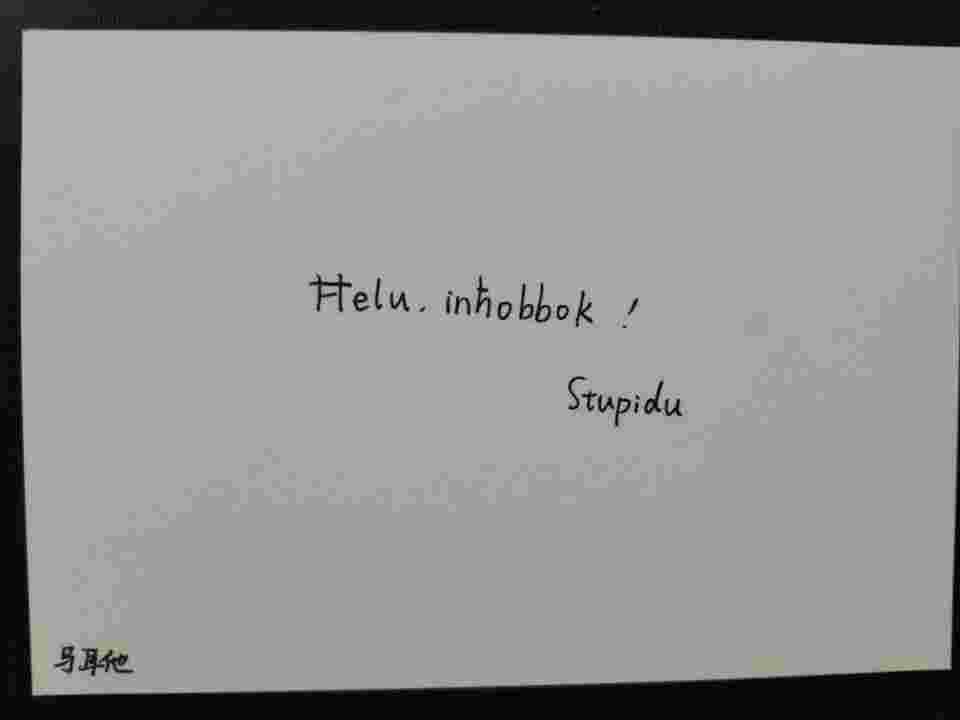 Ħelu. inħobbok !
Stupidu
马耳他